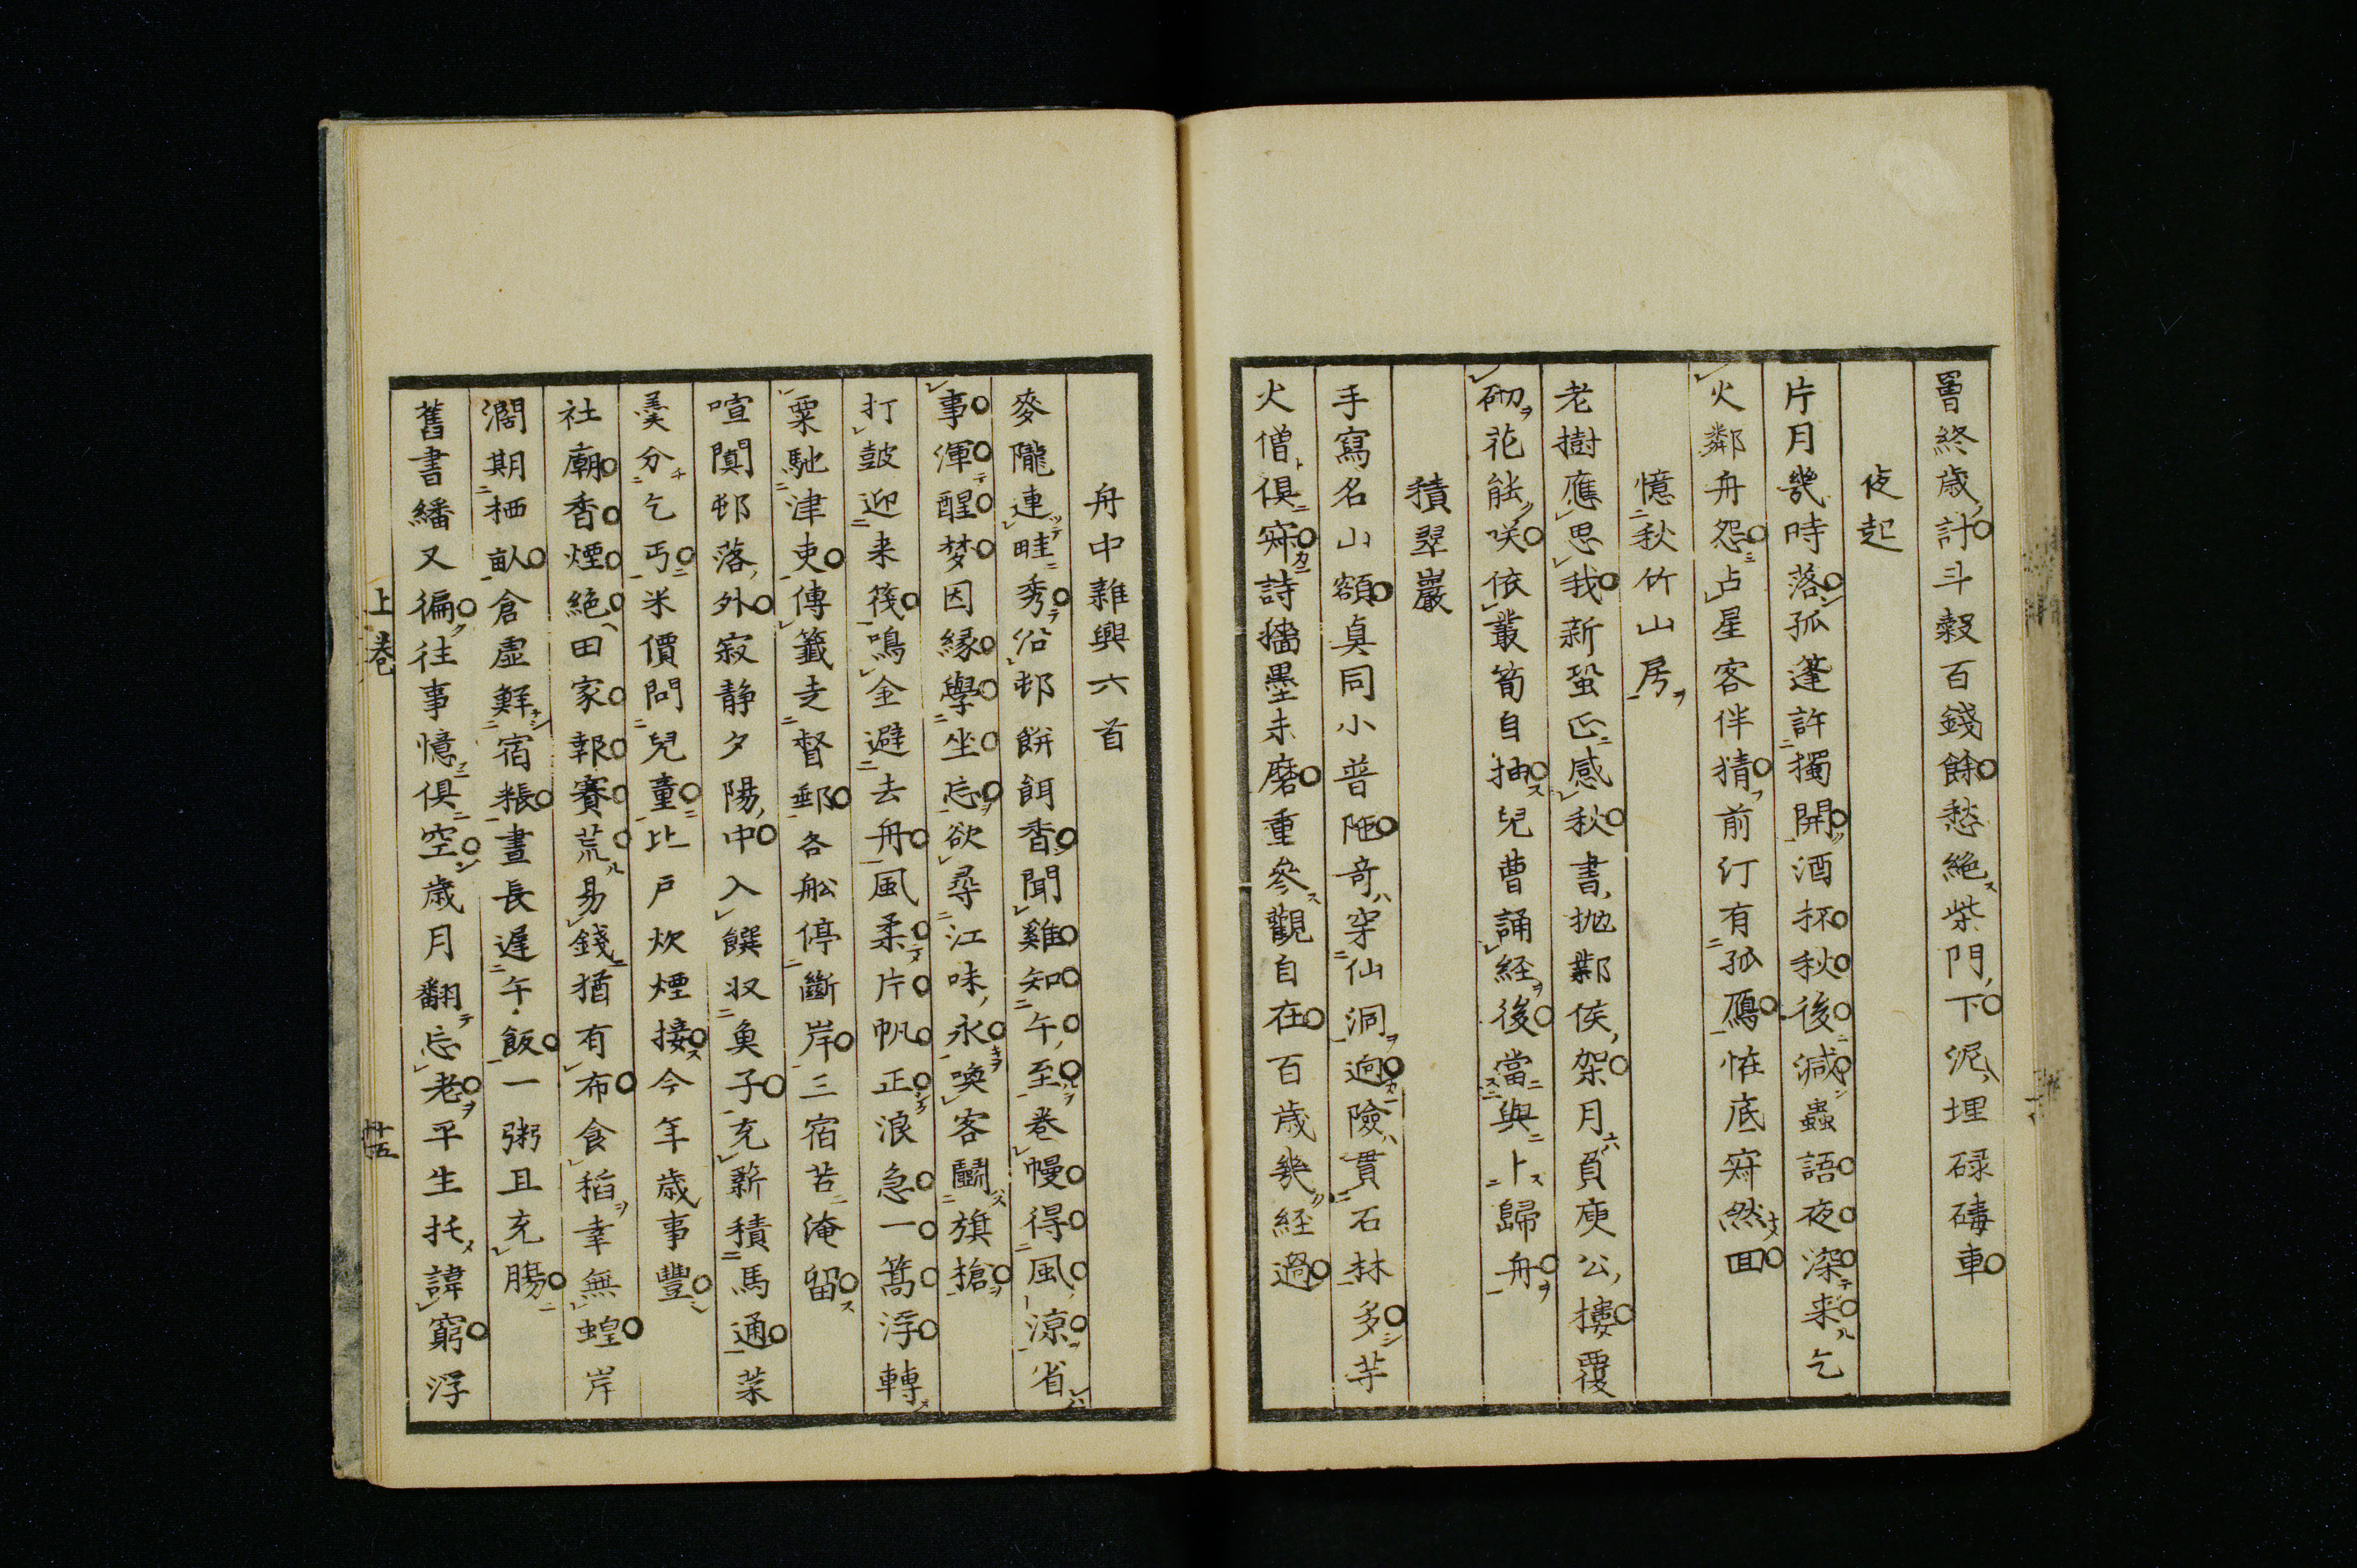 罾終歳計斗穀百錢餘愁絶柴門下泥埋碌碡車
夜起
片月幾時落孤蓬許獨開酒杯秋後減蟲語夜深来乞
火鄰舟怨占星客伴猜前汀有孤鴈怪底寂然回
憶秋竹山房
老樹應思我新蛩正感秋書抛鄴侯架月負庾公摟覆
砌花能咲依叢筍自抽兒曹誦経後當與卜歸舟
積翠巖
手寫名山額真同小普陁奇穿仙洞逈險貫石林多芋
火僧俱寂詩牆墨未磨重參觀自在百歳幾経過
舟中雜興六首
麥隴連畦秀沿邨餅餌香聞雞知午至巻幔得風涼省
事渾醒梦因縁學坐忘欲尋江味永喚客鬭旗搶
打鼓迎来筏鳴金避去舟風柔片帆正浪急一篙浮轉
粟馳津吏傳籤走督郵各舩停斷岸三宿苦淹留
喧闐邨落外寂静夕陽中入饌収魚子充薪積馬通菜
羹分乞丐米價問兒童比戸炊煙接今年歳事豐
社廟香煙絶田家報賽荒易錢猶有布食稻幸無蝗岸
濶期栖畝倉虚鮮宿粻晝長遅午飯一粥且充腸
舊書繙又徧往事憶俱空歳月翻忘老平生托諱窮浮
上巻
廿五